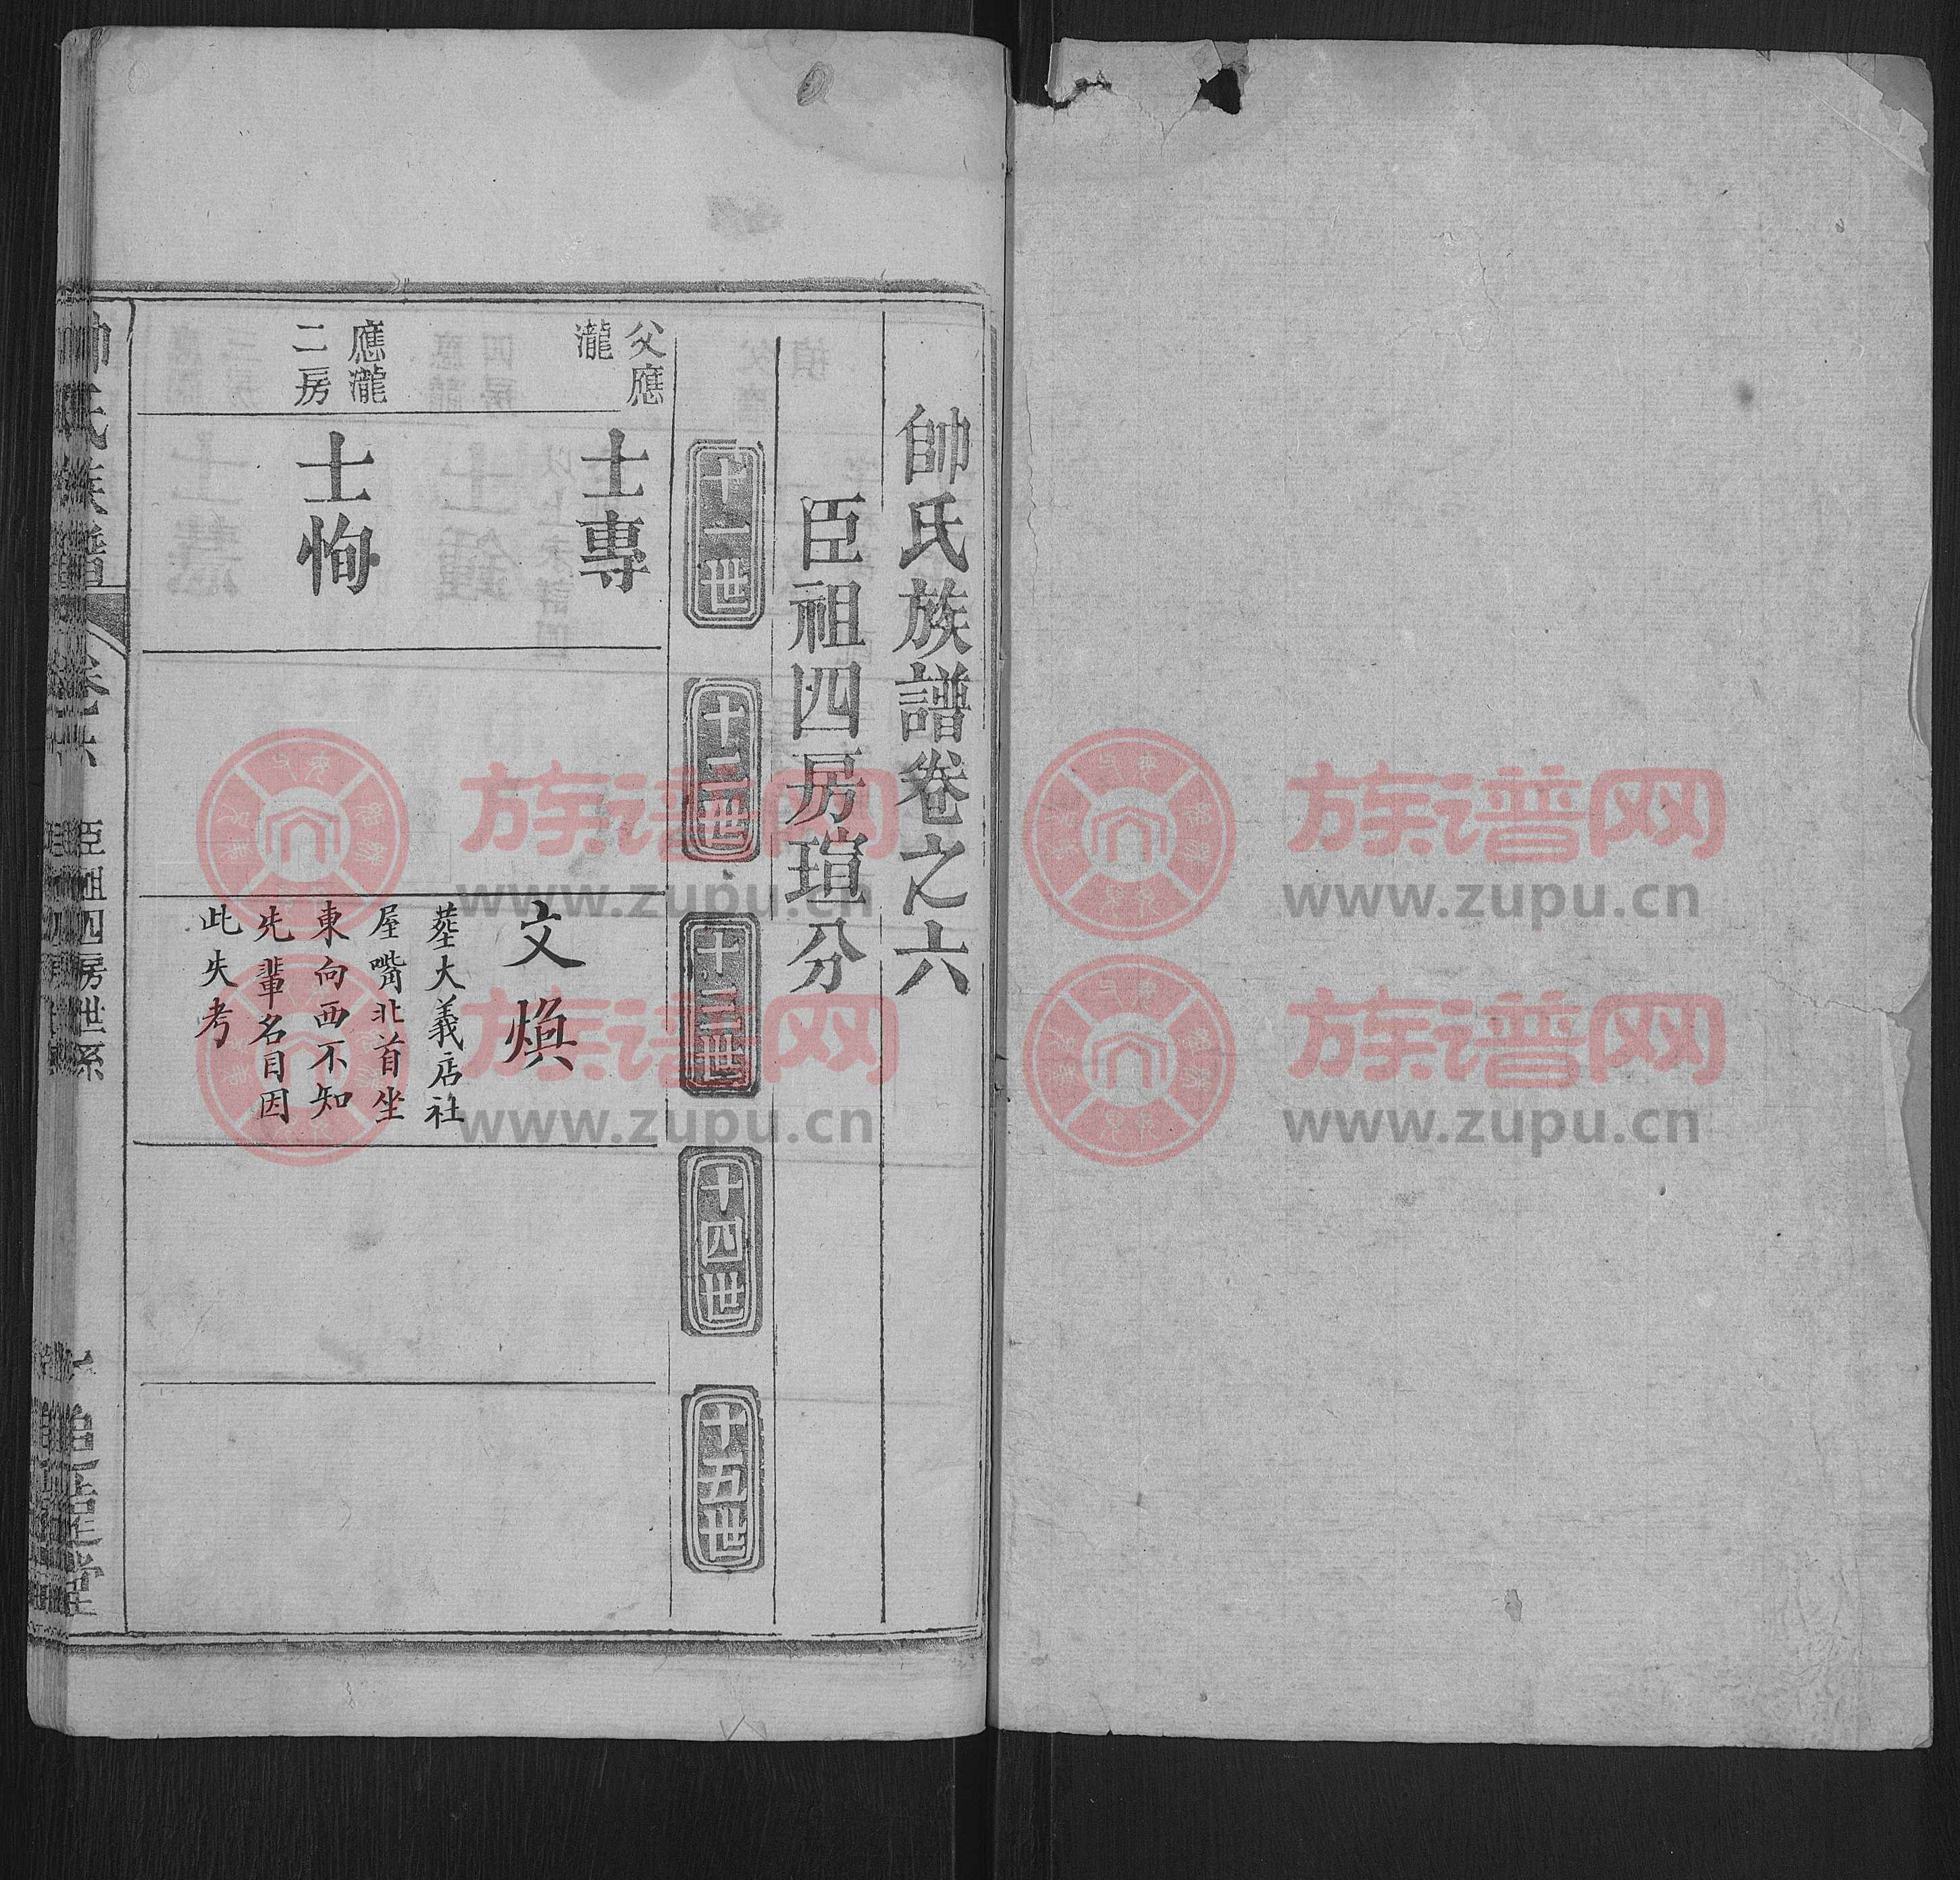 帥氏族譜卷之六
臣祖四房瑄分
十一世
十二世
十三世
十四世
十五世
父應
瀧
士專
應瀧
二房
士恂
文煥
塟大義店社
屋嘴北首坐
東向西不知
先輩名目因
此失考
帥氏族譜
卷之六
臣祖四房世系
一
族谱网
www.zupu.cn
族谱网
www.zupu.cn
族谱网
www.zupu.cn
族谱网
www.zupu.cn